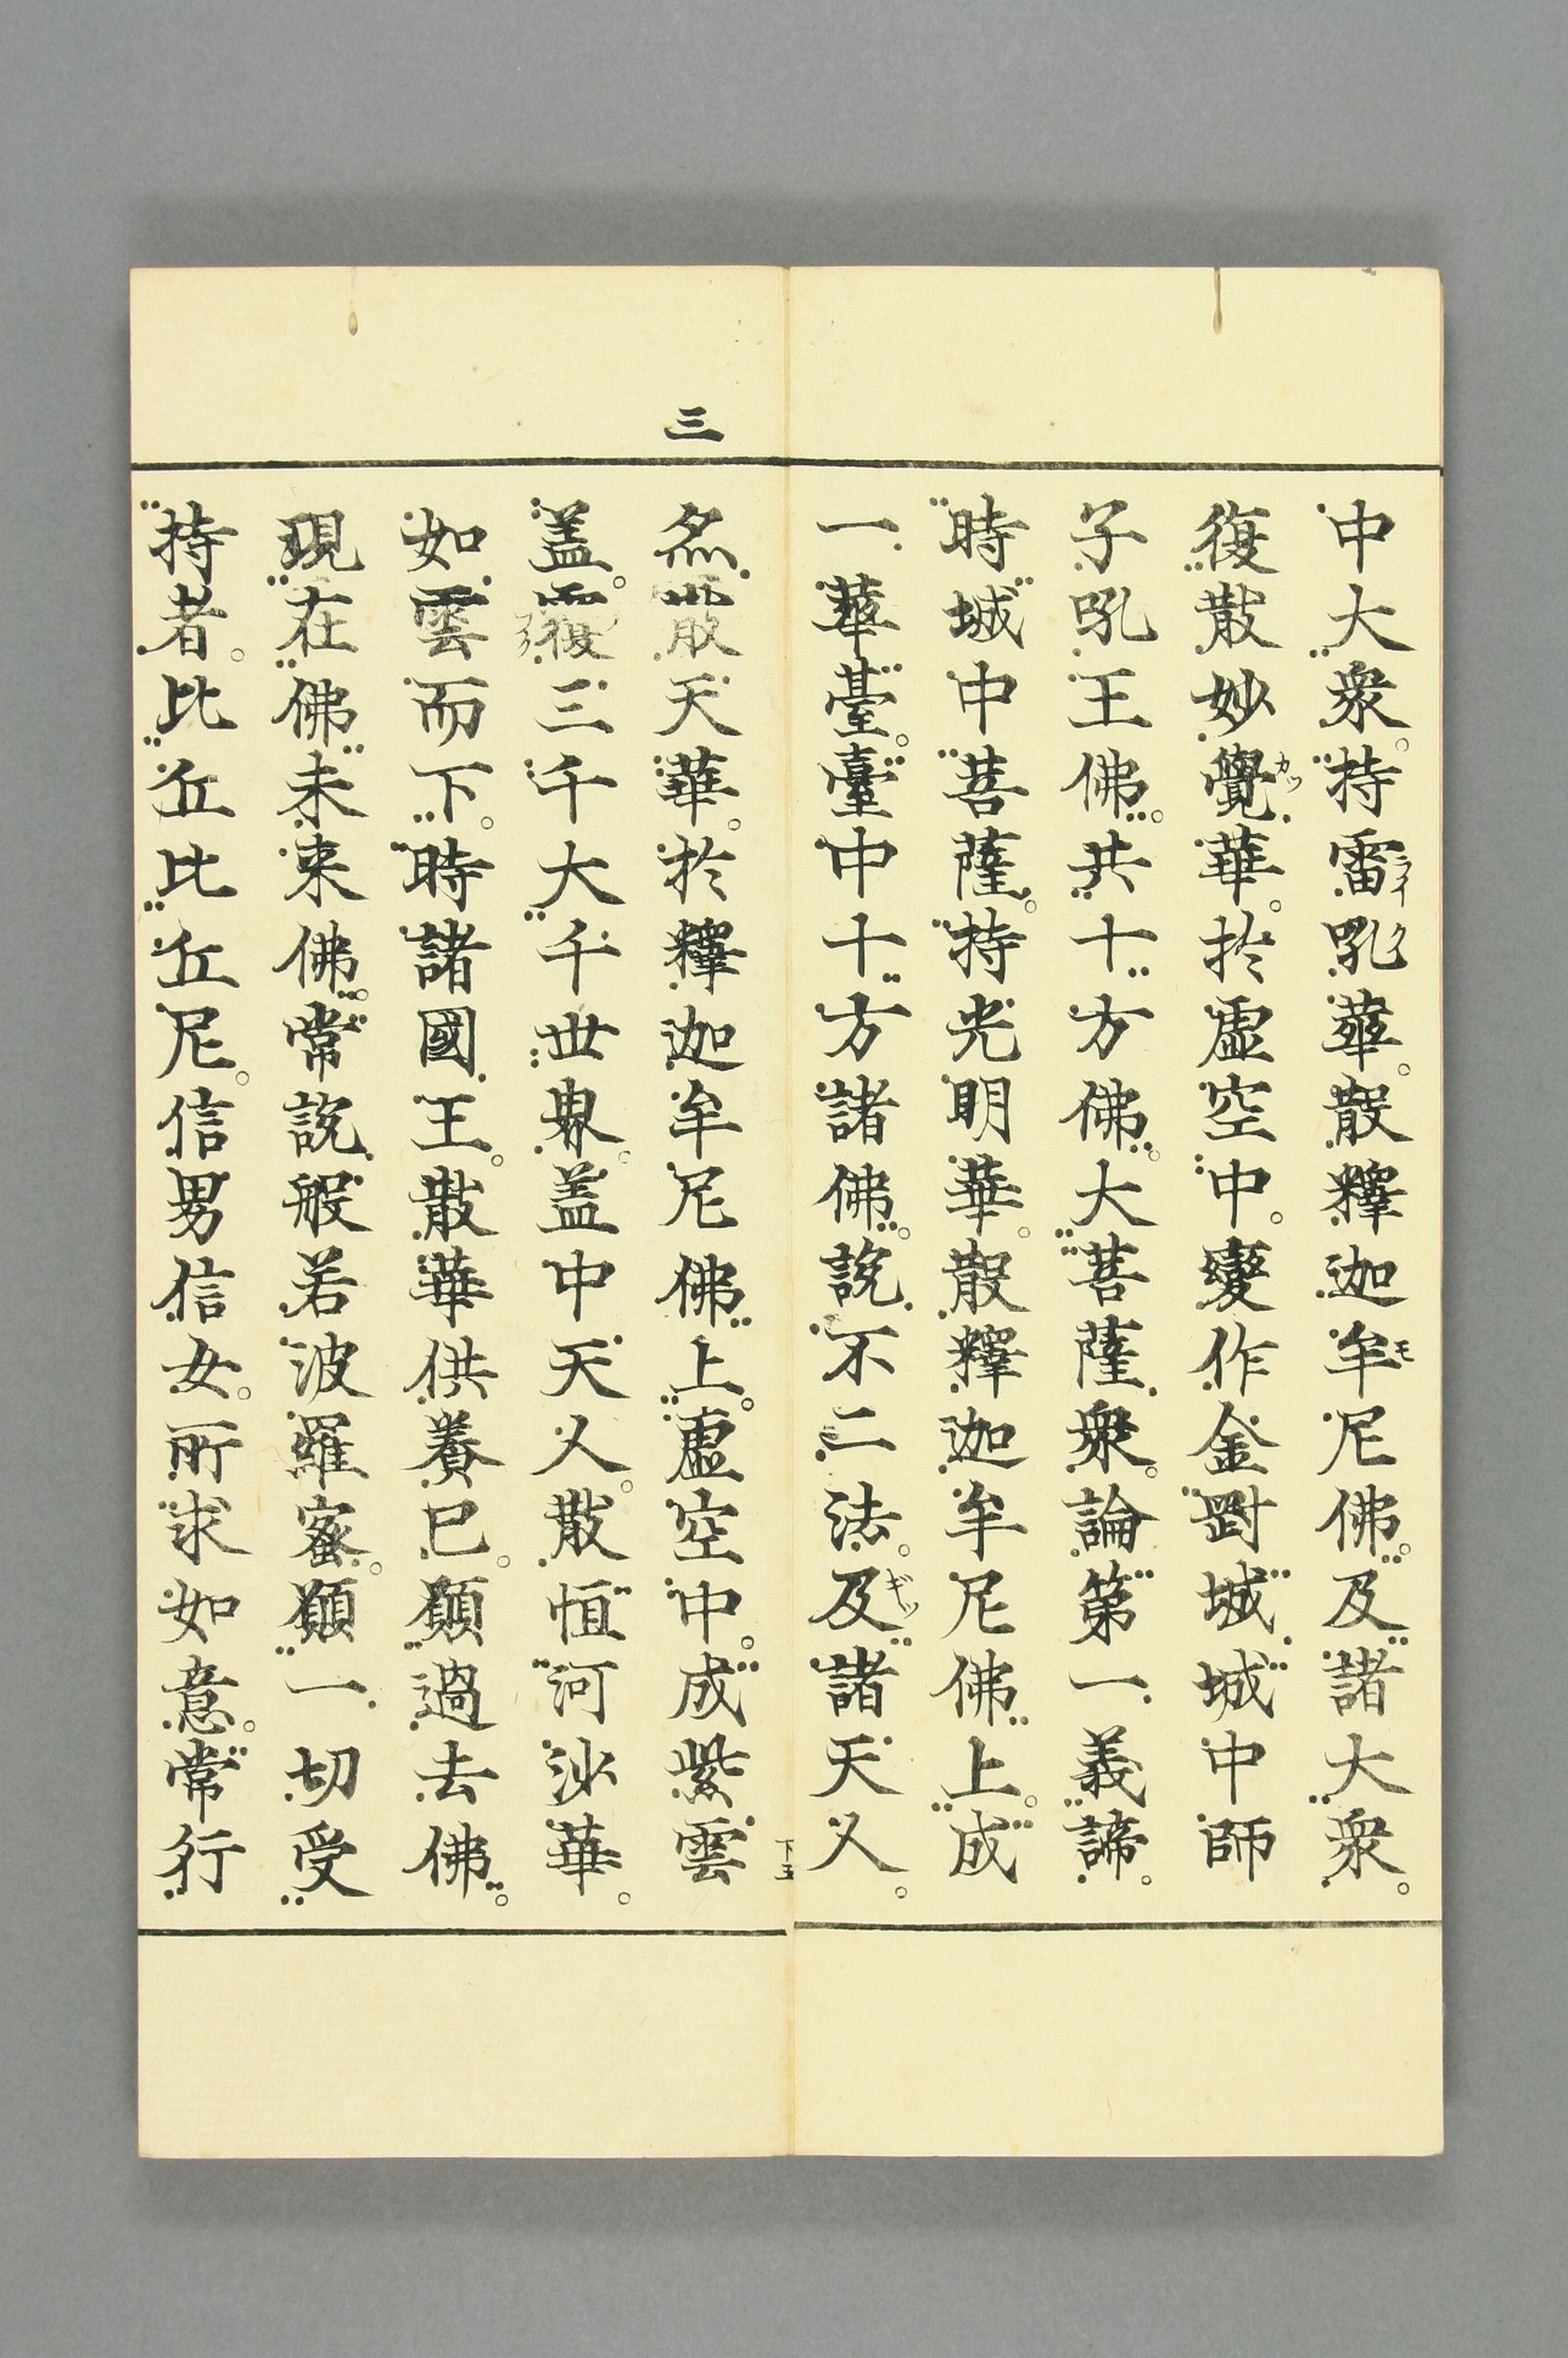 中大衆持雷吼華散釋迦牟尼佛及諸大衆
復散妙覺華於虛空中變作金剛城城中師
子吼王佛共十方佛大菩薩衆論第一義諦
時城中菩薩持光明華散釋迦牟尼佛上成
一華臺臺中十方諸佛說不二法及諸天人
三
然散天華於釋迦牟尼佛上虛空中成紫雲
盖覆三千大千世界盖中天人散恒河沙華
如雲而下時諸國王散華供養已願過去佛
現在佛未来佛常說般若波羅蜜願一切受
持者比丘比丘尼信男信女所求如意常行
下五